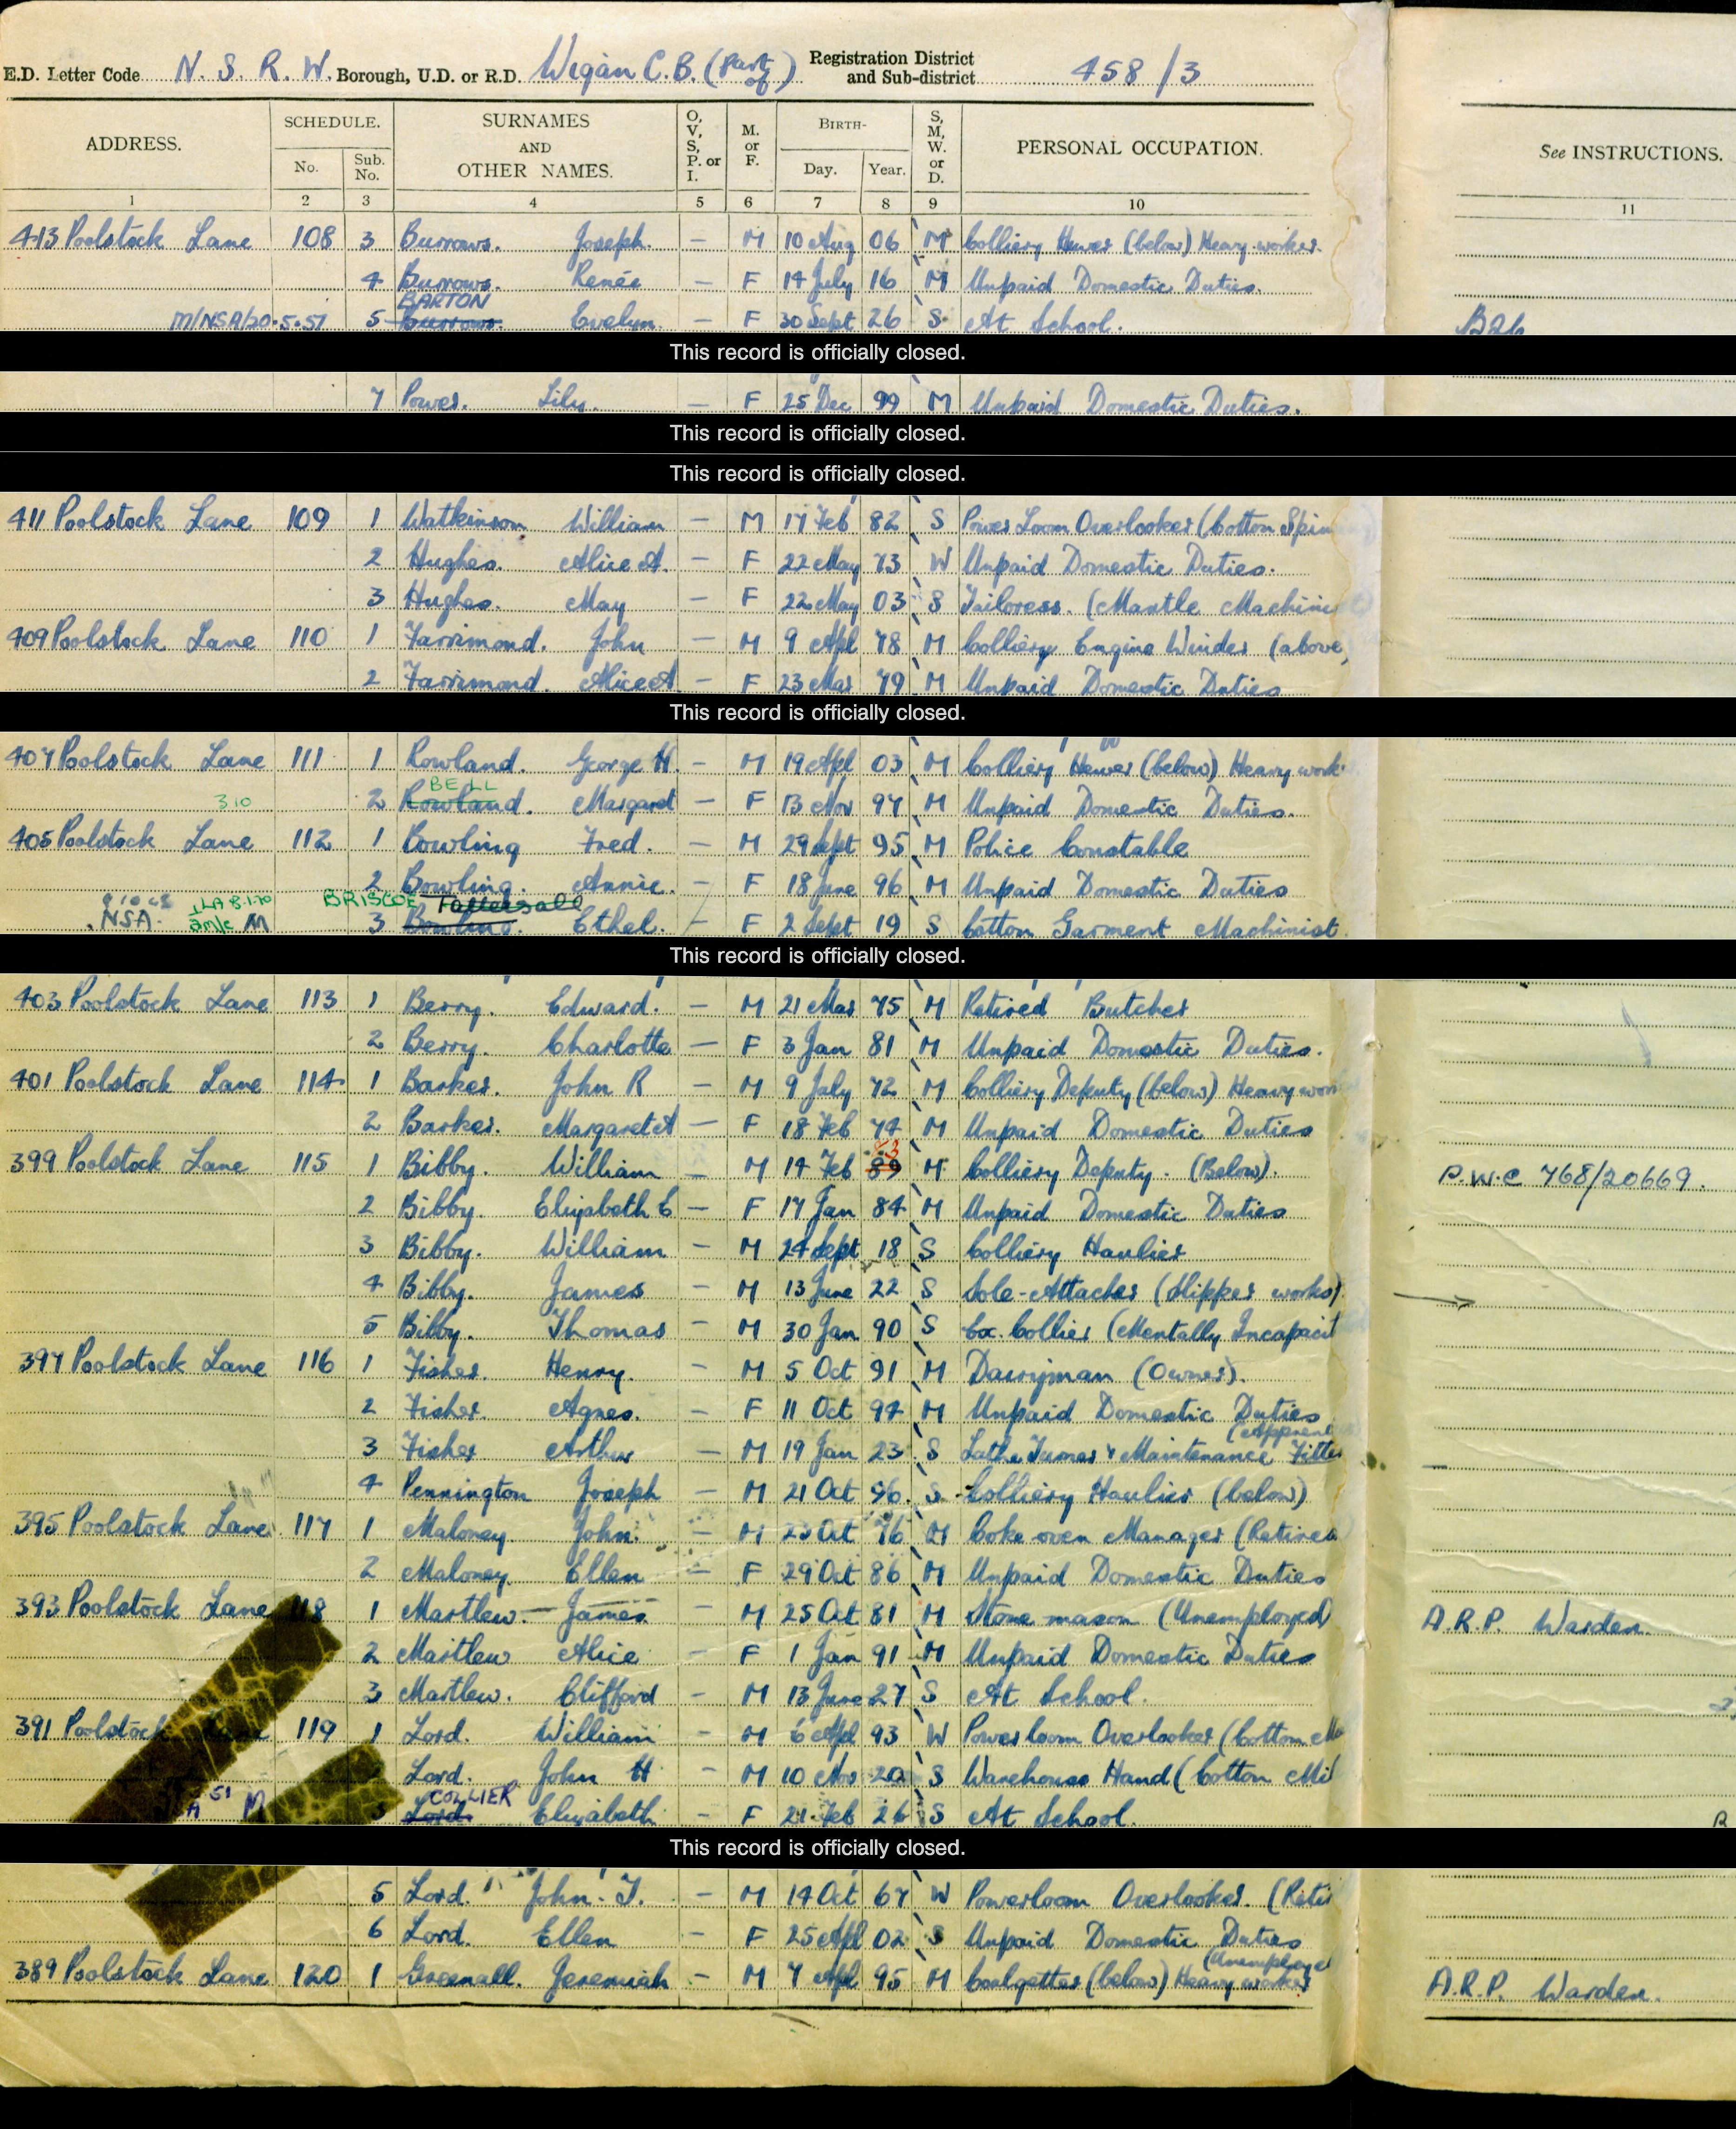 E.D. Letter Code N. S. R. W. Borough, U.D. or R.D. Wigan C.B. (Part of) Registration District and Sub-district 458/3
ADDRESS. SCHEDULE. No. Sub. No. SURNAMES AND OTHER NAMES. O, V, S, P. or I. M. or F. BIRTH- Day. Year. S, M, W. or D. PERSONAL OCCUPATION. See INSTRUCTIONS.
1 2 3 4 5 6 7 8 9 10 11
413 Poolstock Lane 108 3 Burrows. Joseph. — M 10 Aug 06 M Colliery Hewer (below) Heavy worker.
4 Burrows. Renée — F 14 July 16 M Unpaid Domestic Duties.
BARTON
M/NSA/20.5.51 5 Burrows. Evelyn. — F 30 Sept 26 S At School. B26
This record is officially closed.
7 Power. Lily. — F 25 Dec 99 M Unpaid Domestic Duties.
This record is officially closed.
This record is officially closed.
411 Poolstock Lane 109 1 Watkinson William — M 17 Feb 82 S Power Loom Overlooker (Cotton Spin
2 Hughes. Alice A. — F 22 May 73 W Unpaid Domestic Duties.
3 Hughes. May — F 22 May 03 S Tailoress. (Mantle Machinist)
409 Poolstock Lane 110 1 Farrimond. John — M 9 Apl 78 M Colliery Engine Winder (above)
2 Farrimond. Alice A — F 23 Mar 79 M Unpaid Domestic Duties
This record is officially closed.
407 Poolstock Lane 111 1 Rowland. George H. — M 19 Apl 03 M Colliery Hewer (below) Heavy work
BELL
310 2 Rowland. Margaret — F 13 Nov 97 M Unpaid Domestic Duties.
405 Poolstock Lane 112 1 Bowling Fred. — M 29 Sept 95 M Police Constable
2 Bowling. Annie. — F 18 June 96 M Unpaid Domestic Duties
LA 8.1.70 BRISCOE Tattersall
NSA. M 3 Bowling. Ethel. — F 2 Sept 19 S Cotton Garment Machinist.
This record is officially closed.
403 Poolstock Lane 113 1 Berry. Edward. — M 21 Mar 75 M Retired Butcher
2 Berry. Charlotte — F 3 Jan 81 M Unpaid Domestic Duties.
401 Poolstock Lane 114 1 Barker. John R — M 9 July 72 M Colliery Deputy (below) Heavy work
2 Barker. Margaret A — F 18 Feb 74 M Unpaid Domestic Duties
83
399 Poolstock Lane 115 1 Bibby. William — M 14 Feb 89 M Colliery Deputy. (Below). P.W.C 768/20669.
2 Bibby. Elizabeth E — F 17 Jan 84 M Unpaid Domestic Duties
3 Bibby. William — M 24 Sept 18 S Colliery Haulier
4 Bibby. James — M 13 June 22 S Sole-Attacher (Slipper works)
5 Bibby. Thomas — M 30 Jan 90 S Ex. Collier (Mentally Incapacit
397 Poolstock Lane 116 1 Fisher. Henry. — M 5 Oct 91 M Dairyman (Owner).
2 Fisher. Agnes. — F 11 Oct 94 M Unpaid Domestic Duties
(Apprent
3 Fisher Arthur — M 19 Jan 23 S Lathe Turner & Maintenance Fitter
4 Pennington Joseph — M 21 Oct 96. S Colliery Haulier (below)
395 Poolstock Lane. 117 1 Maloney. John. — M 23 Oct 76 M Coke oven Manager (Retired
2 Maloney. Ellen — F 29 Oct 86 M Unpaid Domestic Duties
393 Poolstock Lane 118 1 Martlew. James. — M 25 Oct 81 M Stone mason (Unemployed) A.R.P. Warden.
2 Martlew Alice — F 1 Jan 91 M Unpaid Domestic Duties
3 Martlew. Clifford — M 13 June 27 S At School.
391 Poolstock 119 1 Lord. William — M 6 Apl 93 W Powerloom Overlooker (Cotton
Lord. John H — M 10 Nov 20 S Warehouse Hand (Cotton Mil
51 COLLIER
M 3 Lord. Elizabeth — F 21 Feb 26 S At School.
This record is officially closed.
5 Lord. John. T. — M 14 Oct 67 W Powerloom Overlooker. (Reti
6 Lord. Ellen — F 25 Apl 02 S Unpaid Domestic Duties
(Unemployed
389 Poolstock Lane 120 1 Greenall. Jeremiah — M 7 Apl 95 M Coalgetter (below) Heavy worker A.R.P. Warden.